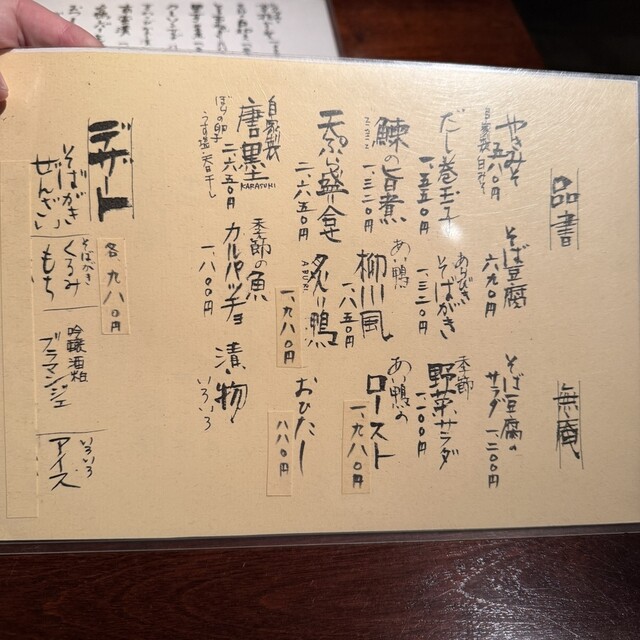 品書
無庵
やきみそ
五八〇円
自家製 白みそ
そば豆腐
六九〇円
そば豆腐の
サラダ 一、二〇〇円
だし巻玉子
一、五五〇円
あらびき
そばがき
一、三二〇円
季節
野菜サラダ
一、一〇〇円
鰊の旨煮
ミニシン
一、三二〇円
あい鴨
柳川風
一、八五〇円
あい鴨の
ロースト
一、九八〇円
天ぷら盛合せ
二、六五〇円
炙り鴨
ABURI
一、九八〇円
おひたし
八八〇円
自家製
唐墨
KARASUMI
二、六五〇円
ぼらの卵
うす塩 天日干し
季節の魚
カルパッチョ
一、八〇〇円
漬物
いろいろ
デザート
各、九八〇円
そばがき
ぜんざい
そばがき
くるみ
もち
吟醸酒粕
ブラマンジェ
いろいろ
アイス